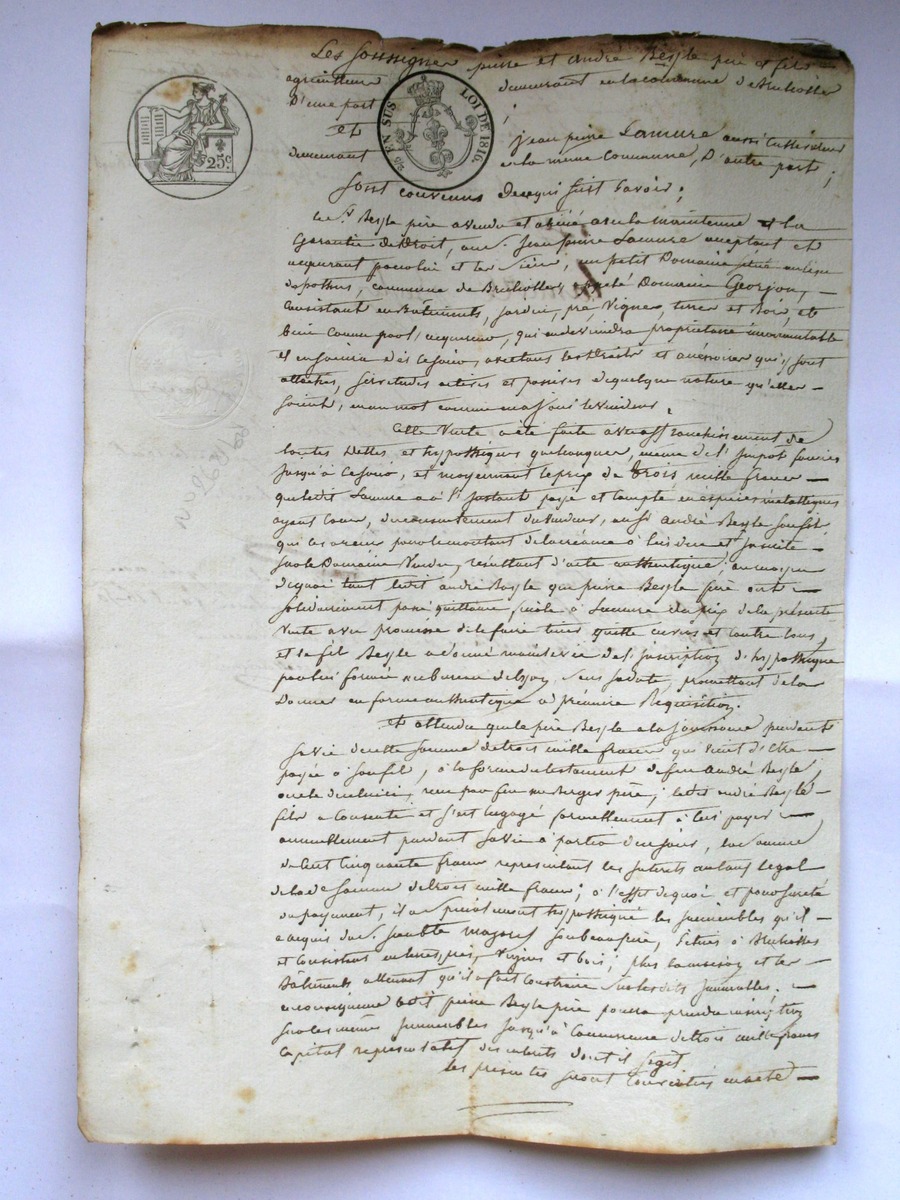 Les soussignés pierre et andré Beyle père et fils
agriculteurs demeurant en la commune de Brulioles
D'une part ;
25ᶜ
25ᶜ EN SUS LOI DE 1816.
Et jean pierre Lamure aussi Cultivateur
demeurant en la meme Commune, D'autre part ;
Sont convenus de ce qui suit savoir ;
Le Sr. Beyle père a vendu et avec la maintenue et la
Garantie de Droit, au Sr. Jean pierre Lamure acceptant et
acquerant pour lui et les siens, un petit Domaine situé au lieu
de commune de Brulioles, appelé Domaine Georjon,
Consistant en Bâtiments, Jardin, pré, Vignes, terres et Bois, et
bien connu par l'acquereur, qui en deviendra propriétaire incommutable
et en jouira dès ce jour, avec tous les droits et accessoires qui y sont
attachés, servitudes actives et passives de quelque nature qu'elles
soient, en un mot comme en a joui le Vendeur.
Cette Vente a été faite avec affranchissement de
toutes Dettes et hypothèques quelconques, meme de l'Impot foncier
jusqu'à ce jour, et moyennant le prix de trois mille francs
que ledit Lamure a à l'Instant payé et compté en espèces métalliques
ayant cours, du consentement du Vendeur, au Sr andré Beyle son fils,
qui les a reçus pour le montant de la créance à lui due et
sur le Domaine Vendu, résultant d'acte authentique ; au moyen
de quoi tant ledit andré Beyle que pierre Beyle père ont
solidairement passé quittance finale à Lamure du prix de la présente
Vente avec promesse de le faire tenir quitte envers et contre tous,
et le fils Beyle a donné mainlevée de l'Inscription d'hypothèque
par lui formée au bureau de Lyon, sous sa date, promettant de la
Donner en forme authentique à première Requisition.
Et attendu que le père Beyle a la jouissance pendant
sa vie de cette somme de trois mille francs qui vient d'être
payée à son fils, à la forme du testament de feu André Beyle,
oncle de celui ci, reçu par feu me Berger père ; ledit andré Beyle
fils a consenti et s'est engagé formellement à lui payer
annuellement pendant sa vie à partir de ce jour, la somme
de Cent Cinquante francs représentant les Intérêts au taux légal
de la de somme de trois mille francs ; à l'effet de quoi et pour sureté
du payement, il a spécialement hypothéqué les Immeubles qu'il
a acquis du Sr. son beau père, situés à Brulioles
et Consistant en terres, prés, Vignes et bois ; plus la maison et les
Bâtiments attenant qu'il a fait construire sur lesdits Immeubles.
en conséquence ledit pierre Beyle père pourra prendre inscription
sur les mêmes Immeubles jusqu'à Concurrence de trois mille francs
Capital représentatif des intérêts dont il s'agit
les présentes seront converties en acte